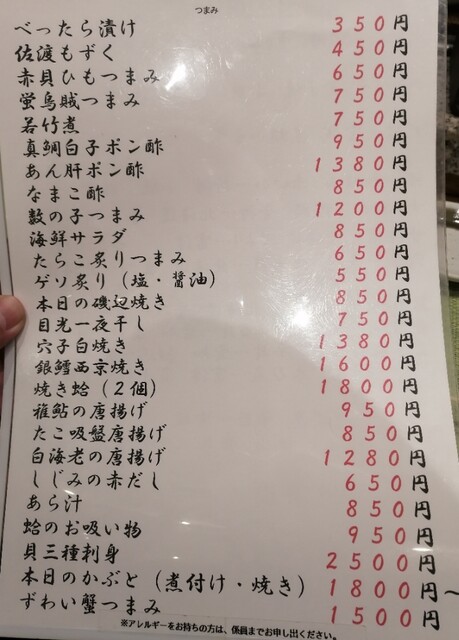 つまみ
べったら漬け 350円
佐渡もずく 450円
赤貝ひもつまみ 650円
蛍烏賊つまみ 750円
若竹煮 750円
真鯛白子ポン酢 950円
あん肝ポン酢 1380円
なまこ酢 850円
数の子つまみ 1200円
海鮮サラダ 850円
たらこ炙りつまみ 650円
ゲソ炙り（塩・醤油） 550円
本日の磯辺焼き 850円
目光一夜干し 750円
穴子白焼き 1380円
銀鱈西京焼き 1600円
焼き蛤（2個） 1800円
稚鮎の唐揚げ 950円
たこ吸盤唐揚げ 850円
白海老の唐揚げ 1280円
しじみの赤だし 650円
あら汁 850円
蛤のお吸い物 950円
貝三種刺身 2500円
本日のかぶと（煮付け・焼き） 1800円～
ずわい蟹つまみ 1500円
※アレルギーをお持ちの方は、係員までお申し出ください。